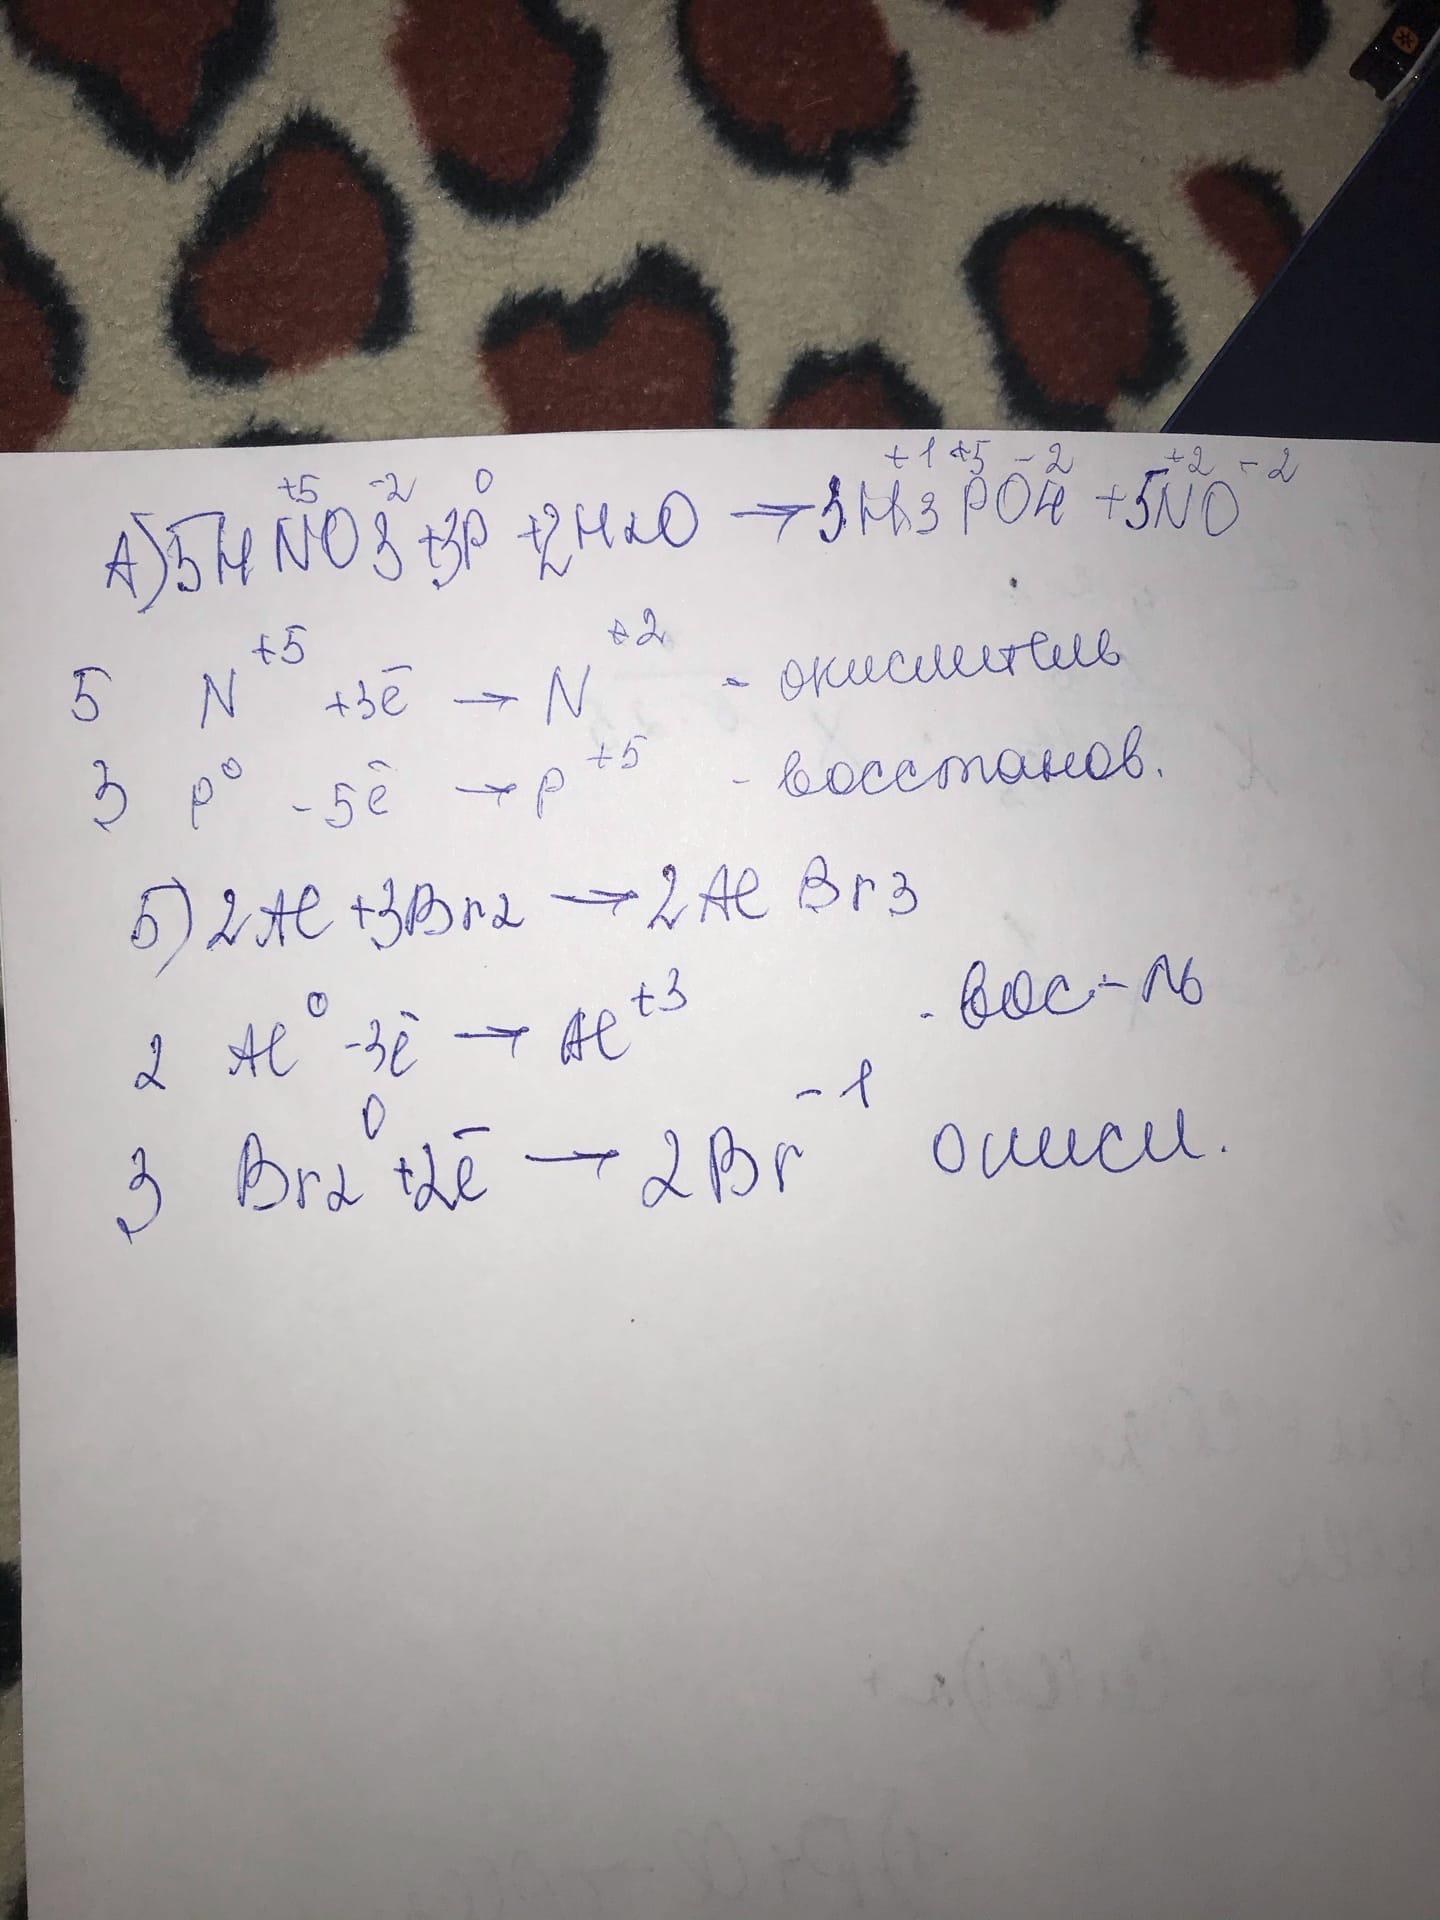 А) 5HN⁺⁵O3⁻² + 3P⁰ + 2H2O → 3H3⁺¹P⁺⁵O4⁻² + 5N⁺²O⁻²
5 N⁺⁵ +3ē → N⁺² - окислитель
3 P⁰ -5ē → P⁺⁵ - восстанов.
Б) 2Al + 3Br2 → 2AlBr3
2 Al⁰ -3ē → Al⁺³ - вос-ль
3 Br2⁰ +2ē → 2Br⁻¹ окисл.